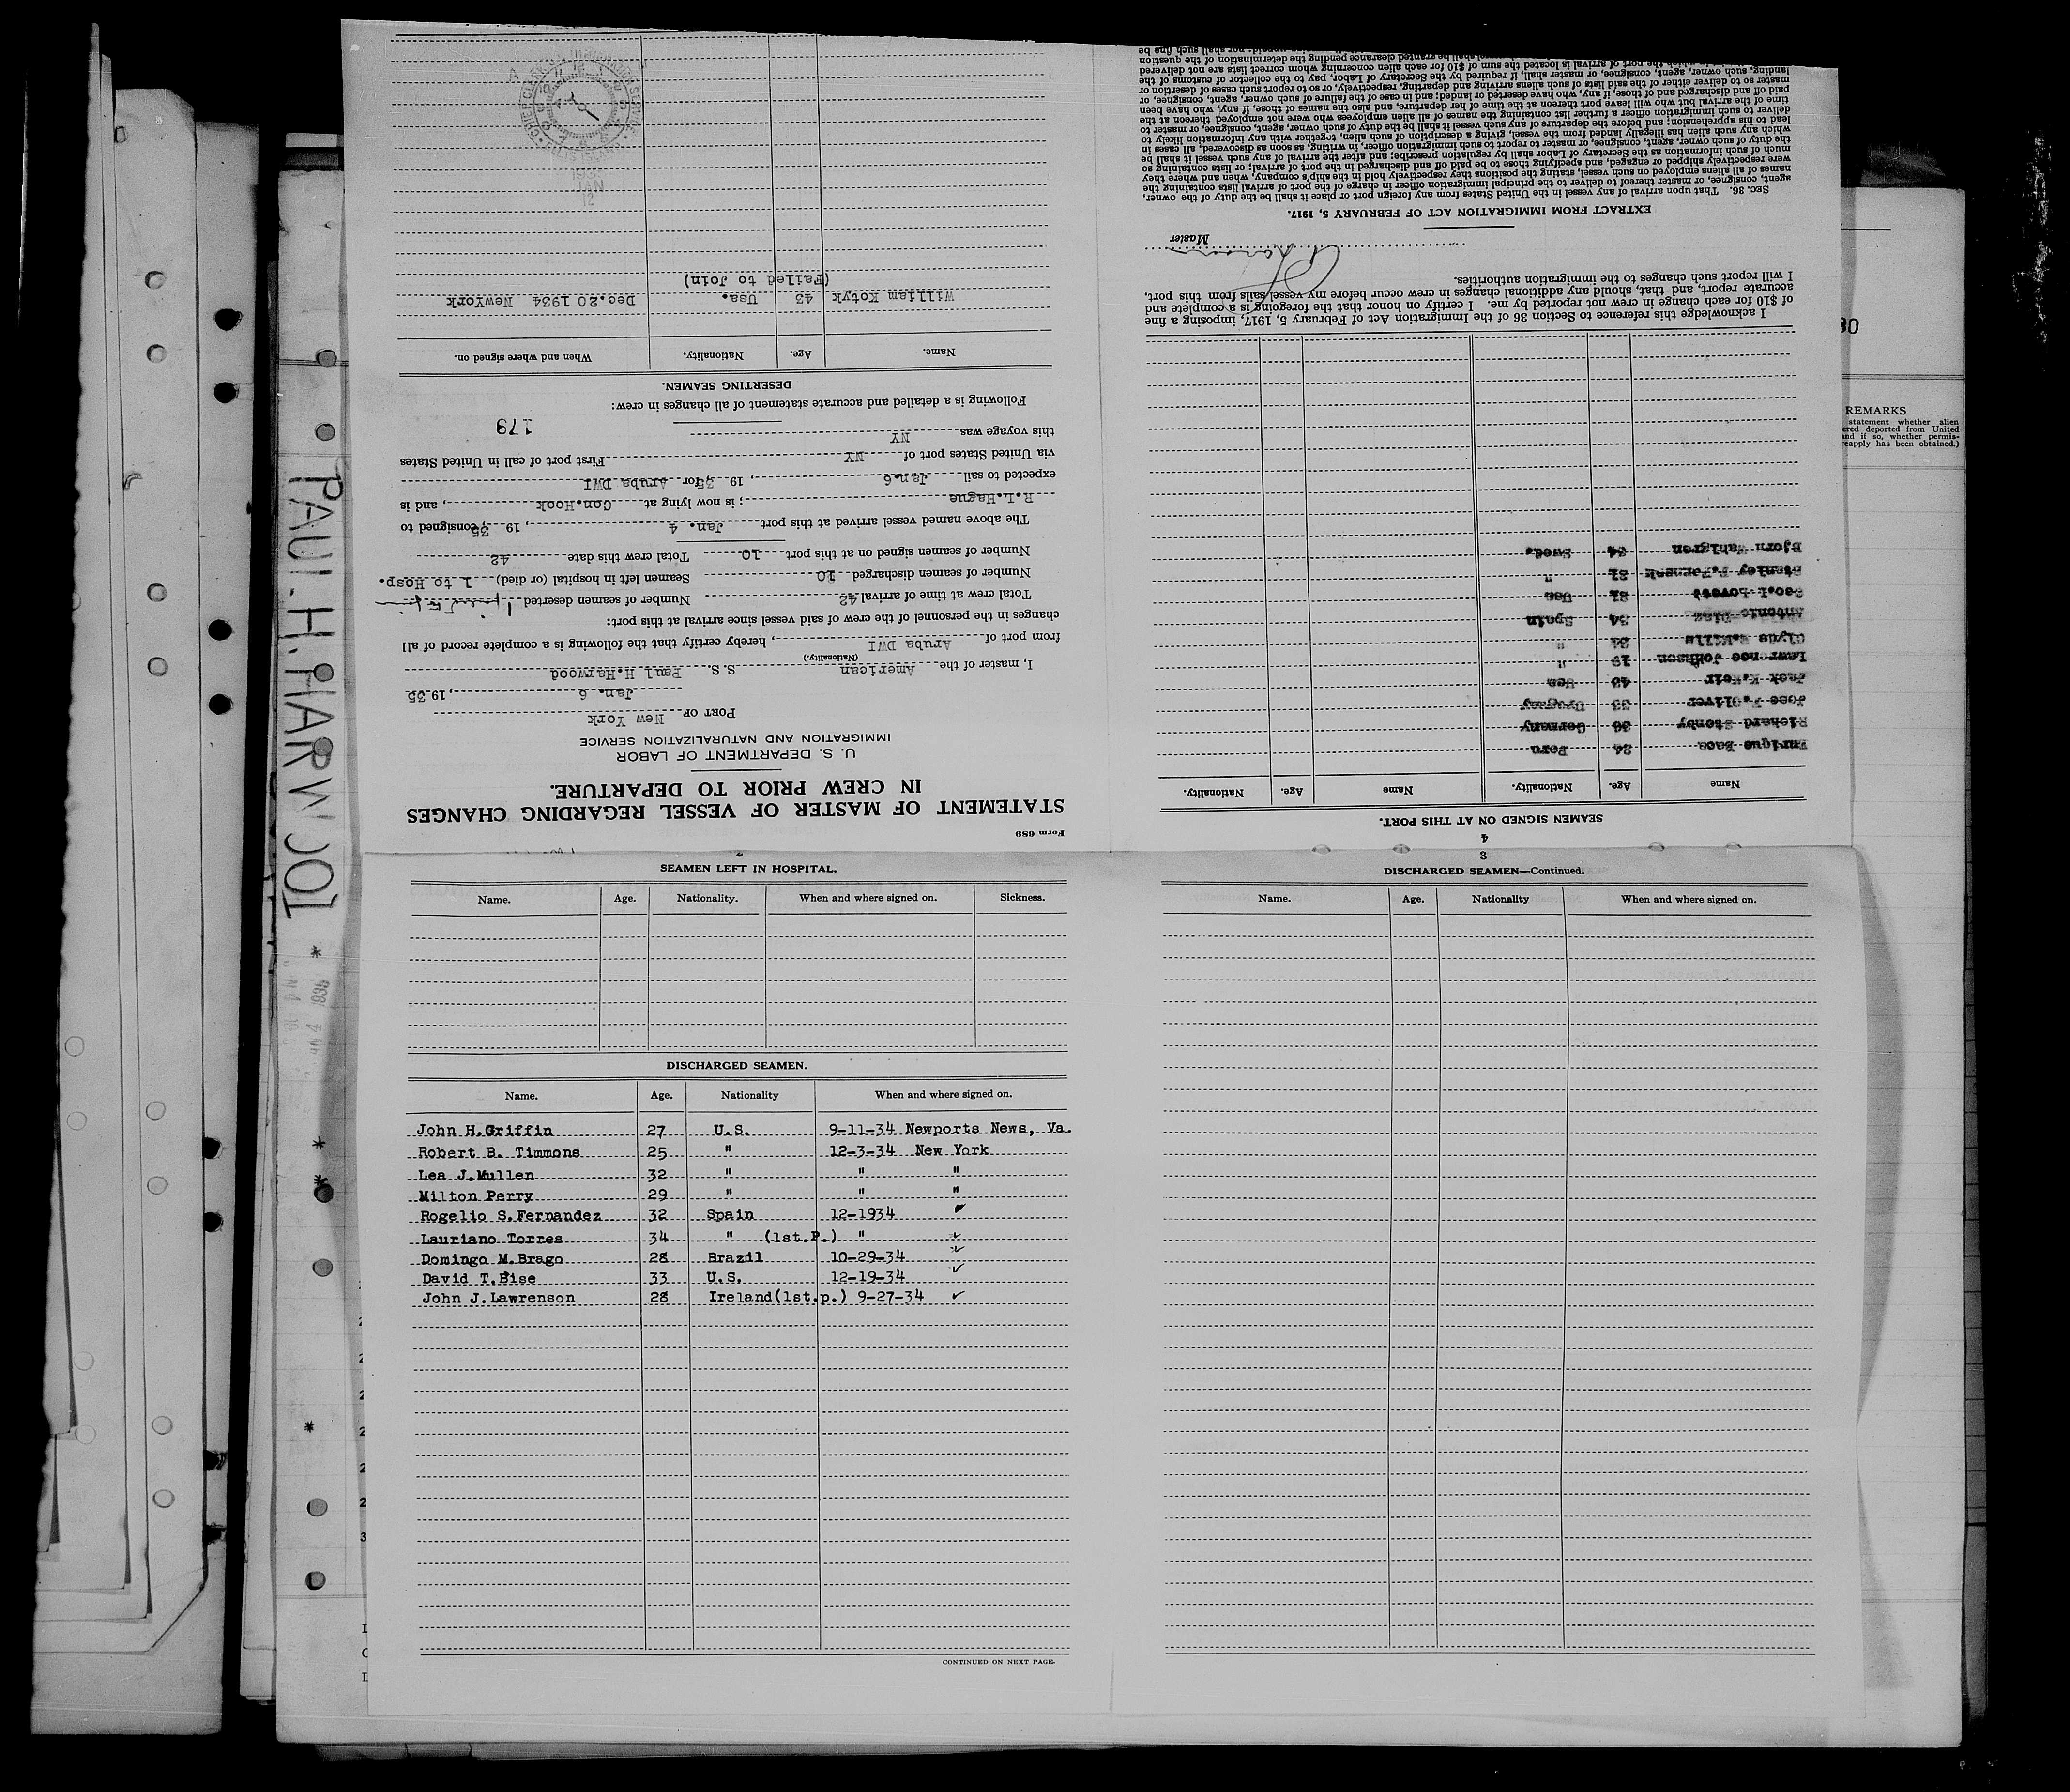 PAUL H. HARWOOD
Form 689
STATEMENT OF MASTER OF VESSEL REGARDING CHANGES
IN CREW PRIOR TO DEPARTURE.
U. S. DEPARTMENT OF LABOR
IMMIGRATION AND NATURALIZATION SERVICE
PORT OF New York
Jan. 6, 19 35
I, master of the American S.S. Paul H.Harwood
(Nationality.)
from port of Aruba DWI, hereby certify that the following is a complete record of all
changes in the personnel of the crew of said vessel since arrival at this port:
Total crew at time of arrival 42 Number of seamen deserted 1
Number of seamen discharged 10 Seamen left in hospital (or died) 1 to Hosp.
Number of seamen signed on at this port 10 Total crew this date 42
The above named vessel arrived at this port Jan. 4, 19 35, consigned to
R.L.Hague; is now lying at Con.Hook, and is
expected to sail Jan.6, 19 35 for Aruba DWI
via United States port of NY First port of call in United States
this voyage was NY
179
Following is a detailed and accurate statement of all changes in crew:
DESERTING SEAMEN.
Name. Age. Nationality. When and where signed on.
William Kotyk 43 Usa. Dec.20 1934 NewYork
(Failed to Join)
1935
JAN
12
SEAMEN LEFT IN HOSPITAL.
Name. Age. Nationality. When and where signed on. Sickness.
DISCHARGED SEAMEN.
Name. Age. Nationality When and where signed on.
John H.Griffin 27 U.S. 9-11-34 Newports News, Va.
Robert B. Timmons 25 " 12-3-34 New York
Lea J.Mullen 32 " " "
Milton Perry 29 " " "
Rogelio S.Fernandez 32 Spain 12-1934 "
Lauriano Torres 34 " (1st.P.) "
Domingo M.Brago 28 Brazil 10-29-34
David T.Bise 33 U.S. 12-19-34
John J.Lawrenson 28 Ireland(1st.p.) 9-27-34
CONTINUED ON NEXT PAGE.
3
DISCHARGED SEAMEN—Continued.
Name. Age. Nationality When and where signed on.
4
SEAMEN SIGNED ON AT THIS PORT.
Name Age. Nationality. Name Age. Nationality.
Enrique Baca 24 Peru
Richard Stenby 36 Germany
Jose F.Oliver 33 Uruguay
Jack K.Weir 43 Usa
Lawrence Johnson 19 "
Clyde W.Mills 24 "
Antonio Diaz 34 Spain
Geo.L.Lovett 21 Usa
Stanley 21 "
Bjorn Wahlgren 34 Swede.
I acknowledge this reference to Section 36 of the Immigration Act of February 5, 1917, imposing a fine
of $10 for each change in crew not reported by me. I certify on honor that the foregoing is a complete and
accurate report, and that, should any additional changes in crew occur before my vessel sails from this port,
I will report such changes to the immigration authorities.
Master
EXTRACT FROM IMMIGRATION ACT OF FEBRUARY 5, 1917.
SEC. 36. That upon arrival of any vessel in the United States from any foreign port or place it shall be the duty of the owner,
agent, consignee, or master thereof to deliver to the principal immigration officer in charge of the port of arrival lists containing the
names of all aliens employed on such vessel, stating the positions they respectively hold in the ship's company, when and where they
were respectively shipped or engaged, and specifying those to be paid off and discharged in the port of arrival; or lists containing so
much of such information as the Secretary of Labor shall by regulation prescribe; and after the arrival of any such vessel it shall be
the duty of such owner, agent, consignee, or master to report to such immigration officer, in writing, as soon as discovered, all cases in
which any such alien has illegally landed from the vessel, giving a description of such alien, together with any information likely to
lead to his apprehension; and before the departure of any such vessel it shall be the duty of such owner, agent, consignee, or master to
deliver to such immigration officer a further list containing the names of all alien employees who were not employed thereon at the
time of the arrival but who will leave port thereon at the time of her departure, and also the names of those, if any, who have been
paid off and discharged and of those, if any, who have deserted or landed; and in case of the failure of such owner, agent, consignee, or
master so to deliver either of the said lists of such aliens arriving and departing, respectively, or so to report such cases of desertion or
landing, such owner, agent, consignee, or master shall, if required by the Secretary of Labor, pay to the collector of customs of the
the port of arrival is located the sum of $10 for each alien concerning whom correct lists are not delivered
shall be granted clearance pending the determination of the question
REMARKS
statement whether alien
ered deported from United
nd if so, whether permis-
eapply has been obtained.)